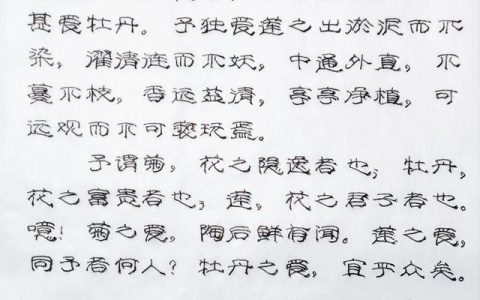 甚爱牡丹。予独爱莲之出淤泥而不
染，濯清涟而不妖，中通外直，不
蔓不枝，香远益清，亭亭净植，可
远观而不可亵玩焉。
予谓菊，花之隐逸者也；牡丹，
花之富贵者也；莲，花之君子者也。
噫！菊之爱，陶后鲜有闻。莲之爱，
同予者何人？牡丹之爱，宜乎众矣。